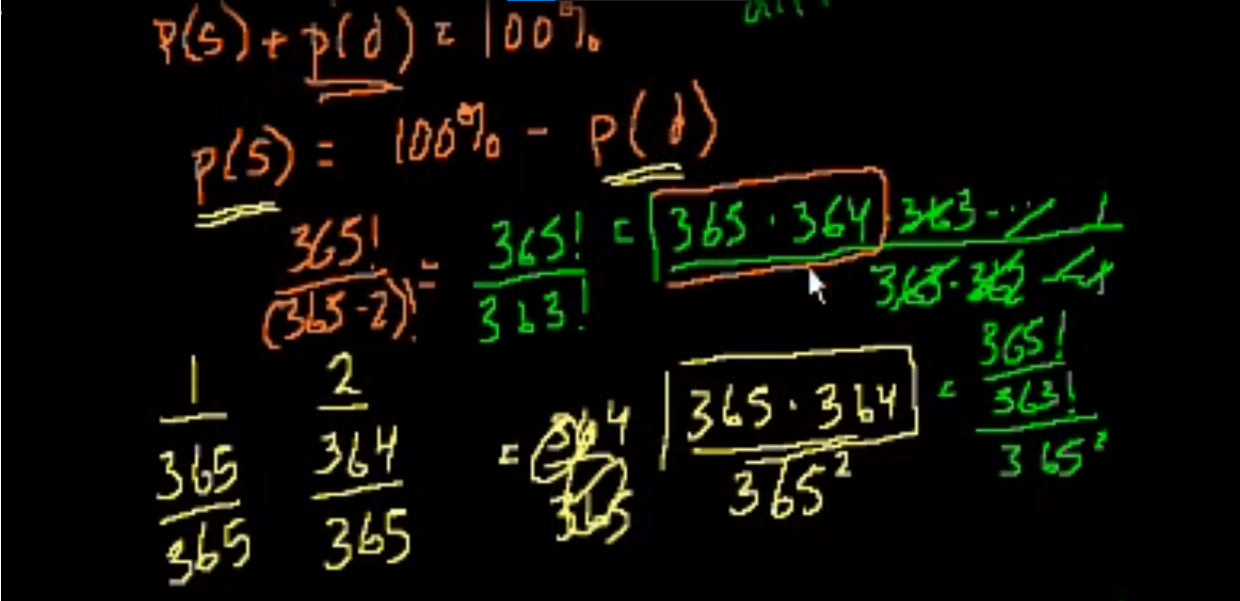 P(s) + p(d) = 100%
p(s) = 100% - p(d)
365! / (365-2)! = 365! / 363! = 365 · 364 · 363 ··· 1 / 363 · 362 ··· 1
1 2
365/365 364/365 = 364/365 365 · 364 / 365² = 365!/363! / 365²